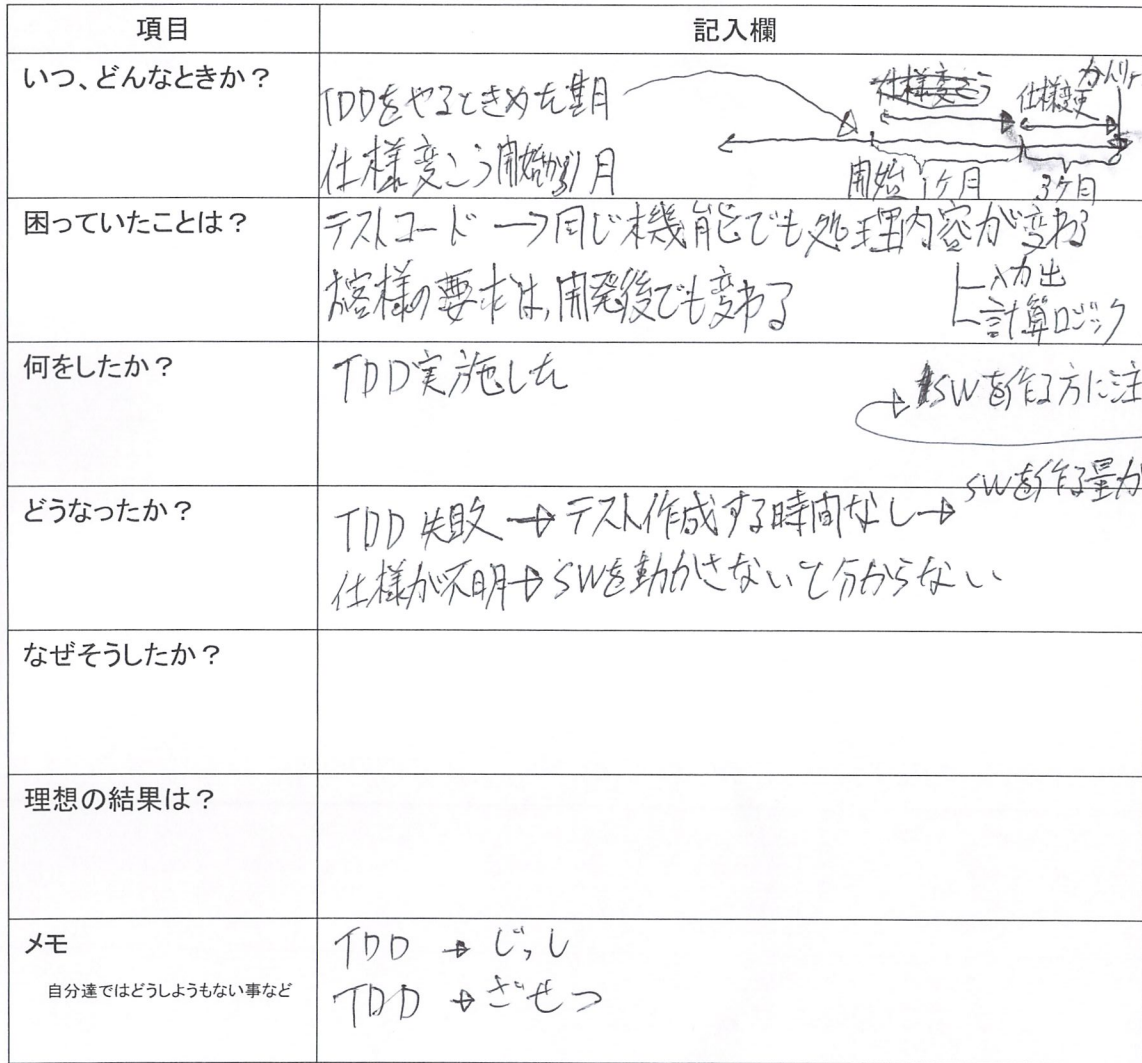 項目
記入欄
いつ、どんなときか?
TDDをやるときめた期
仕様変こう開始から1月
仕様変こう
仕様変更
開始 1ヶ月
3ヶ月
困っていたことは?
テストコード → 同じ機能でも処理内容が変わる
お客様の要求は、開発後でも変わる
入力出
計算ロジック
何をしたか?
TDD実施した
SWを作る方に注
どうなったか?
SWを作る量が
TDD 失敗 → テスト作成する時間なし →
仕様が不明 → SWを動かさないと分からない
なぜそうしたか?
理想の結果は?
メモ
自分達ではどうしようもない事など
TDD → じっし
TDD → ざせつ